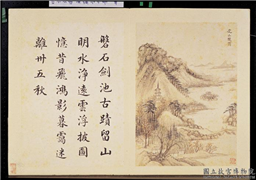 磐石劍池古蹟留山
明水淨遠雲浮披圖
憶昔飛鴻影暮靄迷
離卅五秋
國立故宮博物院